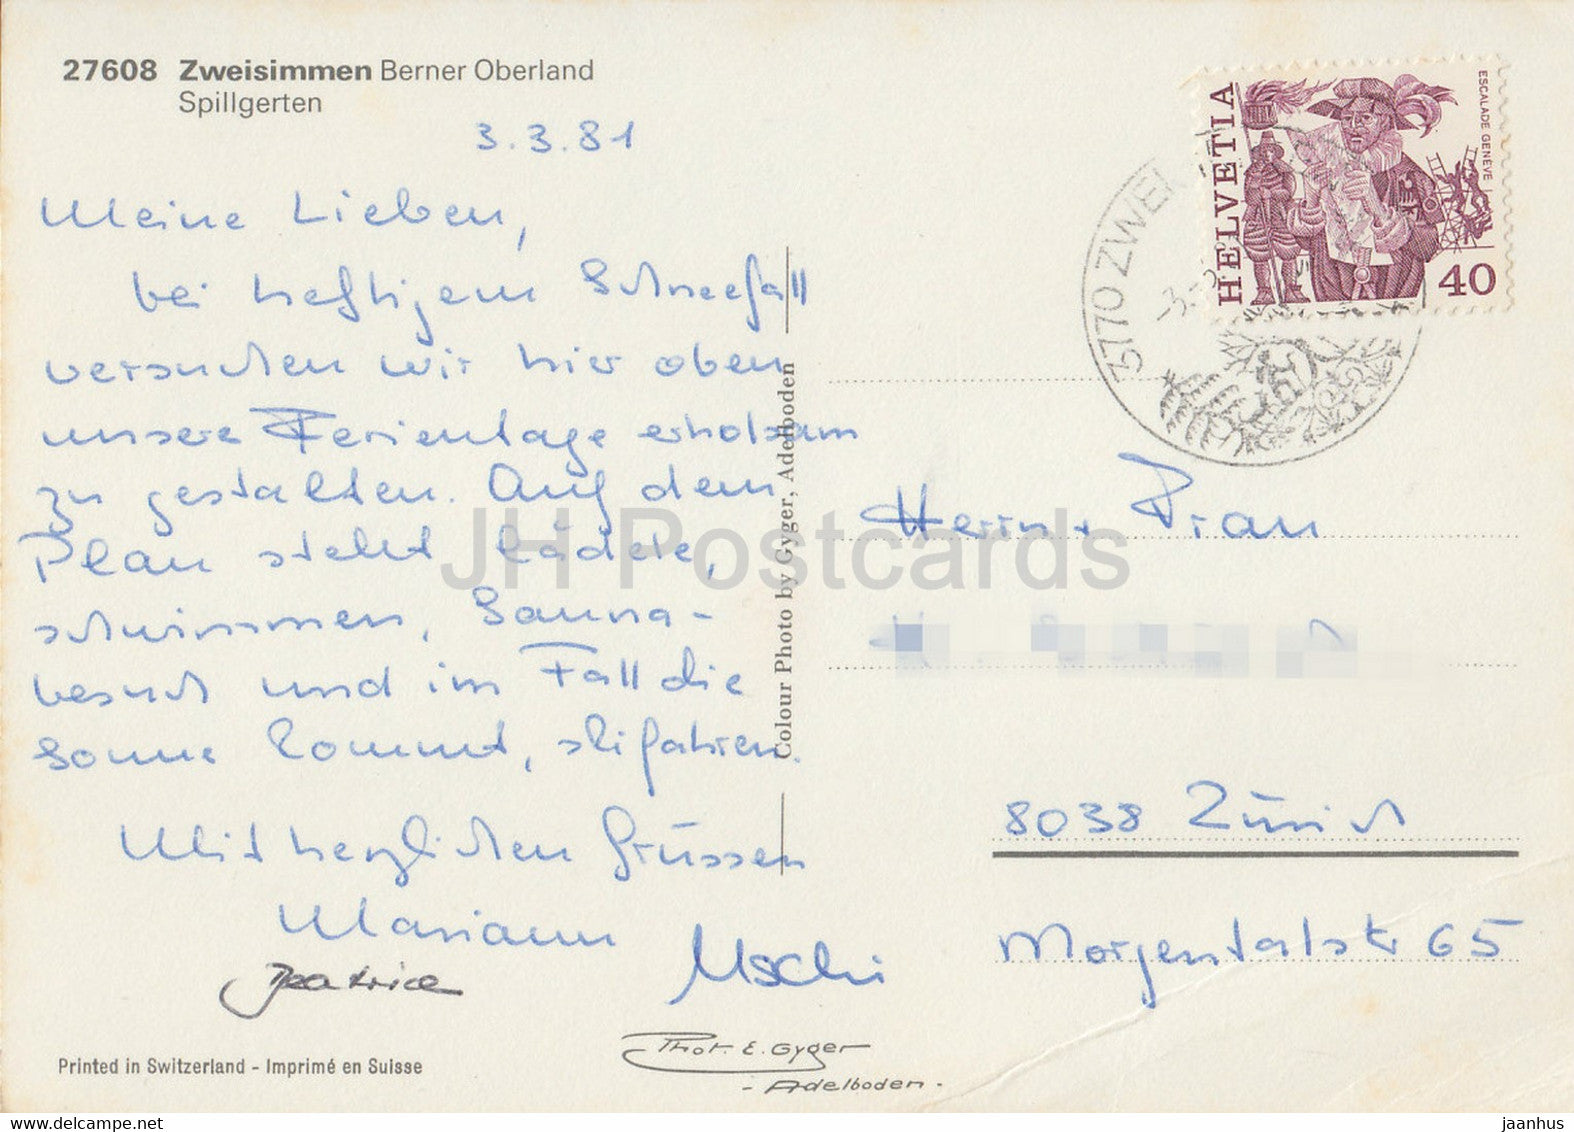 27608 Zweisimmen Berner Oberland
Spillgerten
3.3.81
Meine Lieben,
bei heftigem Schneefall
versuchen wir hier oben
unsere Ferientage erholsam
zu gestalten. Auf dem
Plan steht lädele,
schwimmen, Sauna-
besuch und im Fall die
Sonne kommt, skifahren.
Mit herzlichen Grüssen
Mariann
Patrick
Uschi
Printed in Switzerland - Imprimé en Suisse
Phot. E. Gyger
- Adelboden -
Colour Photo by Gyger, Adelboden
HELVETIA
ESCALADE GENEVE
40
3770 ZWEI
-3.-3
Herrn + Frau
8038 Zürich
Morgentalstr 65
JH Postcards
www.delcampe.net
jaanhus